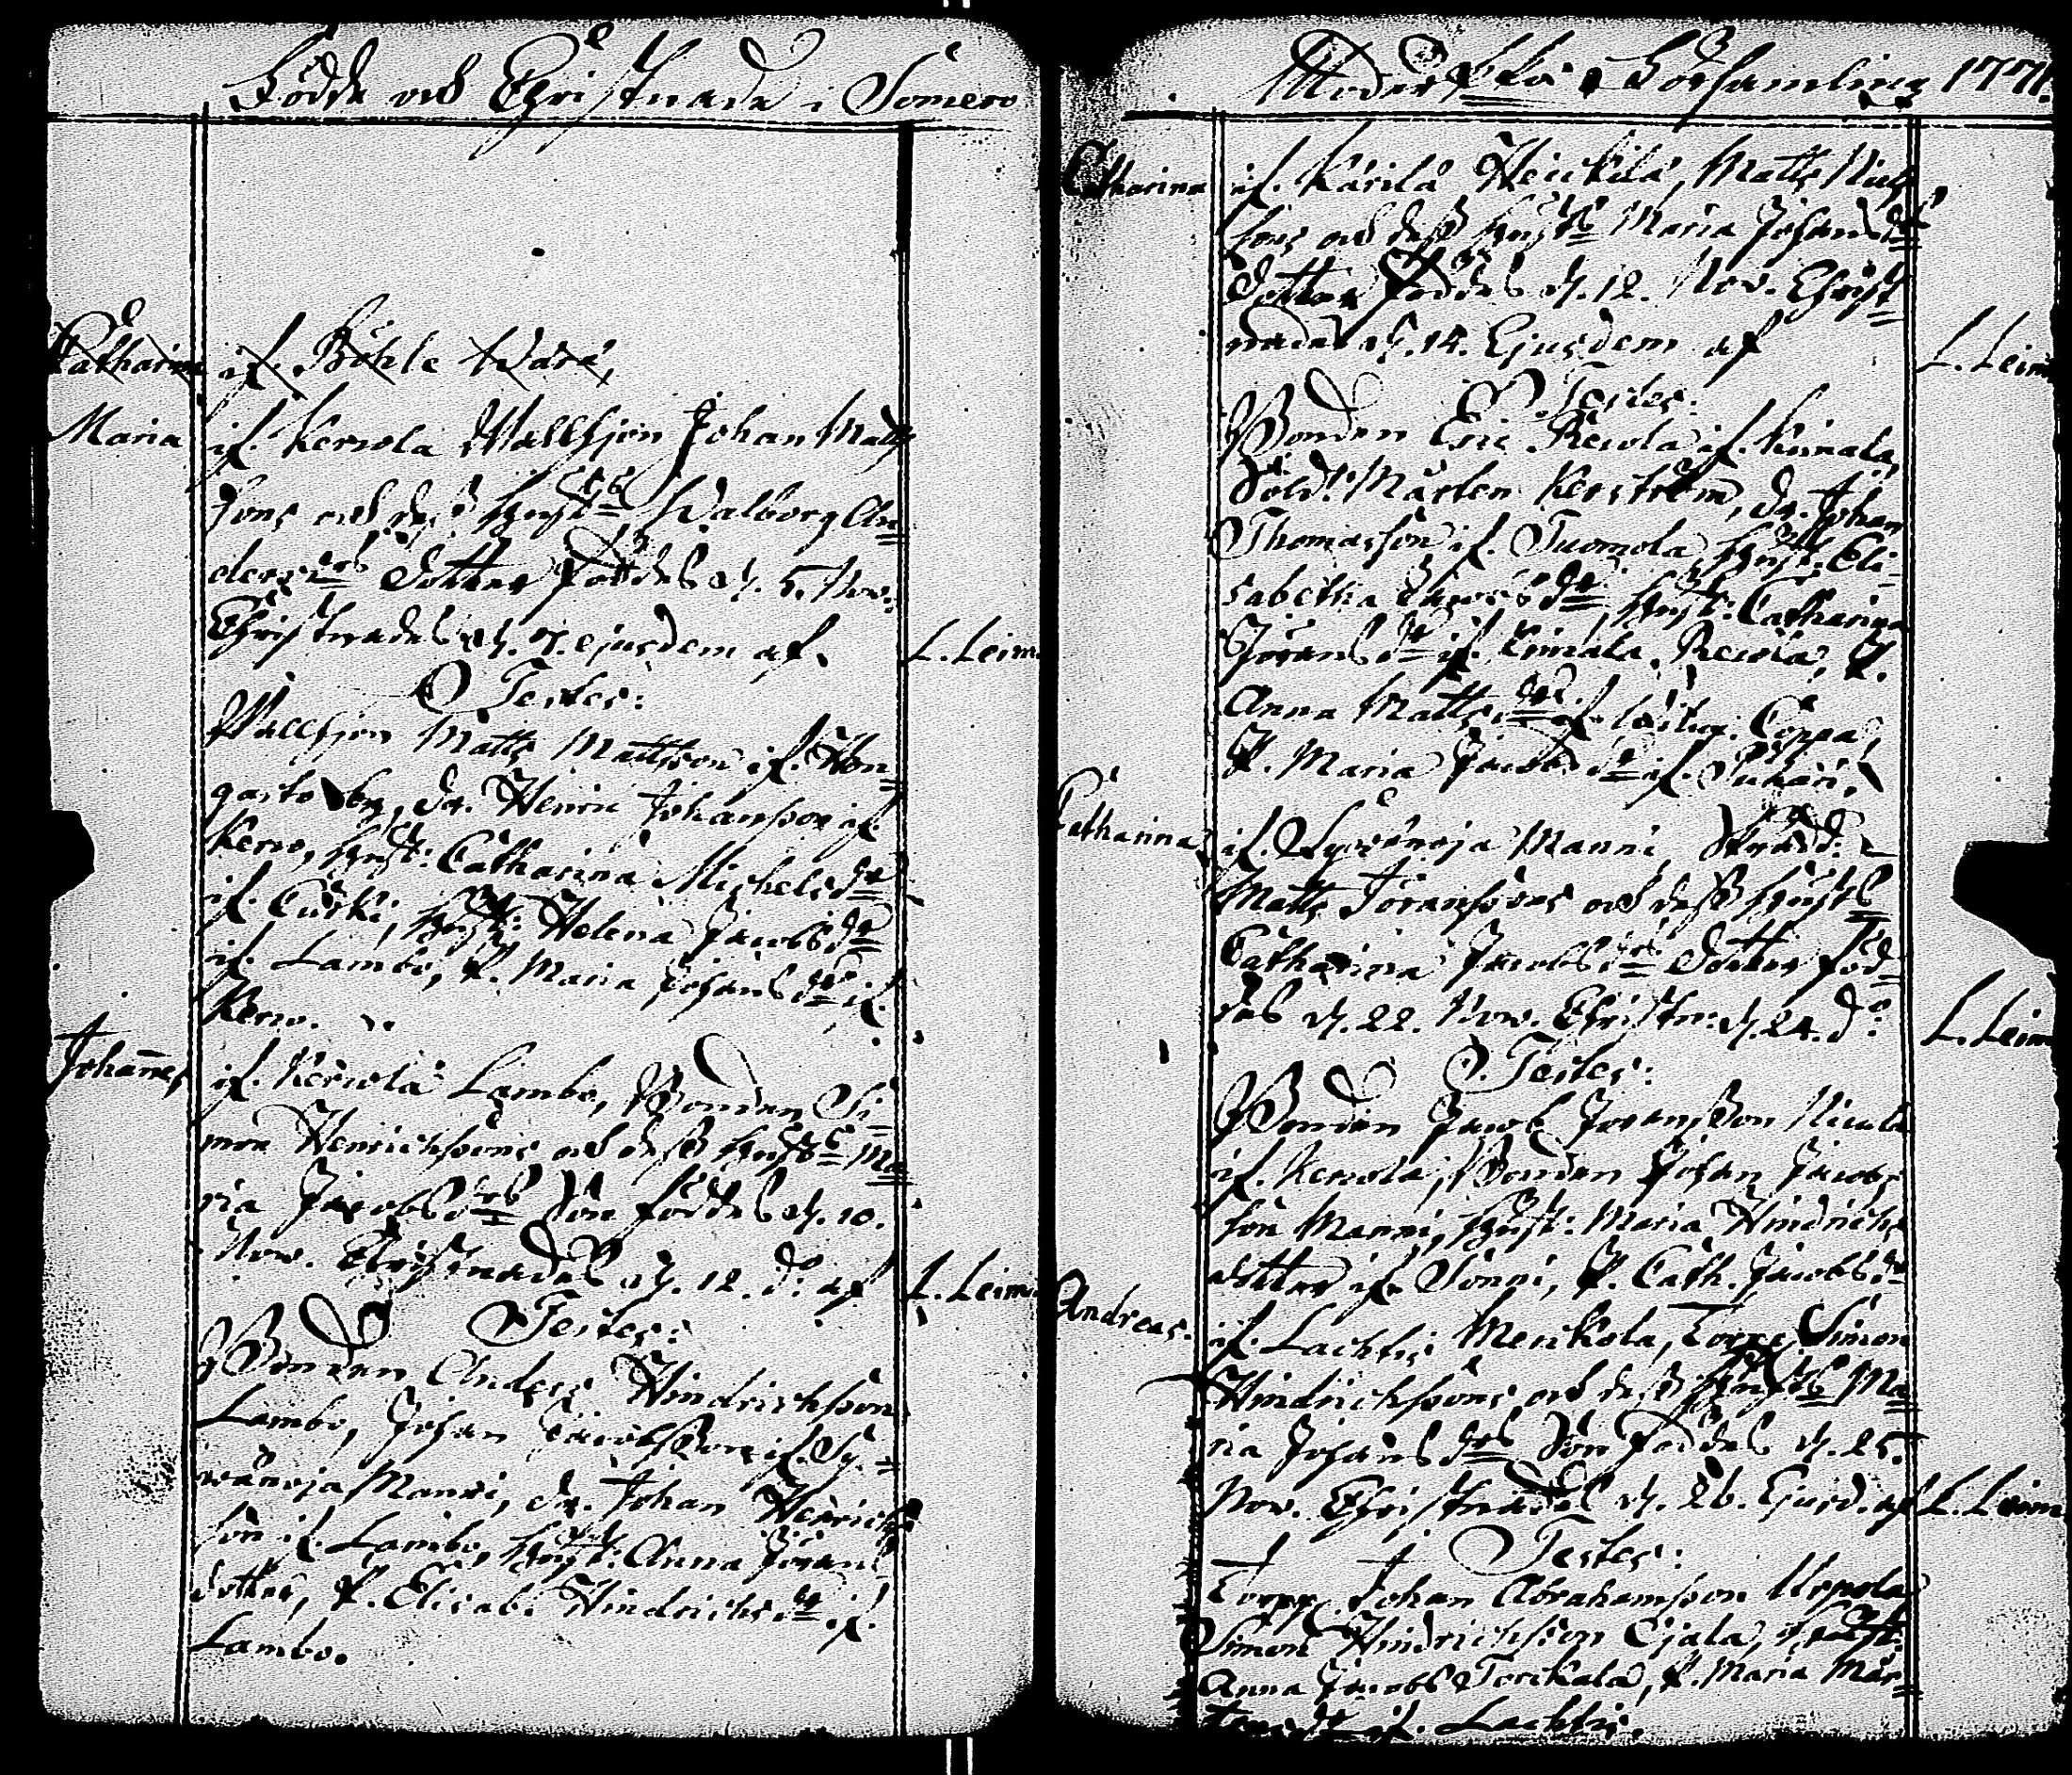 Födde och Christnade i Somero
Catharina if. Böhle Wara,
Maria if. Kerwola Wallfjon Johan Matts
Sons och dess hust: Walborg An
ders drs dotter föddes d. 5. Nov:
Christnades d. 7. ejusdem af. L. Leim
Testes:
Wallfjon Matts Mattsson if. Hon
garto by, dr. Henric Johansson if.
Kerw, hust: Catharina Michels dr
if. Curki, hust: Helena Jacobs dr
if. Lambo, P. Maria Johans dr if.
Kerw.
Johannes if. Kerwola Lambo, Bonden Si
mon Henrichssons och dess hust: Ma
ria Jacobs drs Son föddes d. 10.
Nov. Christnades d. 12. do af L. Leim
Testes:
Bonden Anders Hindrichsson
Lambo, Johan Jacobsson if. Sy
wänoja Manni, dr. Johan Henrich
son if. Lambo, hust: Anna Jörans
dotter, P. Elisab. Hindrichs dr if.
Lambo.
Moder Församling 1771.
Catharina if. Kärilä Heickilä, Matts
sons och dess hust: Maria Johans drs
Dotter föddes d. 12. Nov. Christ
nades d. 14. Ejusdem af L. Leim
Testes:
Bonden Eric Rewola if. Kimala,
Sold: Mårten Kerström, dr. Johan
Thomasson if. Tuomola, hust: Eli
sabetha dr, hust: Catharina
Jörans dr if. Kimala Rewola, P.
Anna Matts dr if. Coppa,
P. Maria Jacobs dr if.
Catharina if. Sywänoja Manni, Skrädd:
Matts Töranssons och dess hust:
Catharina Jacobs drs Dotter föd
des d. 22. Nov. Christn: d. 24. do: L. Leim
Testes:
Bonden Jacob Joransson
if. Kerwola, Bonden Johan Jacobs
son Manni, hust: Maria Hindrichs
dotter if. Sonni, P. Cath. Jacobs dr
Andreas. if. Lachtis Merikola, Torp: Simon
Hindrichssons och dess hust: Ma
ria Johans drs Son föddes d. 25.
Nov. Christnades d. 26. Ejusd. af L. Leim
Testes:
Torp. Johan Abrahamsson Uppola
Simon Hindrichsson Ojala, hust:
Anna Jacobs Torikala, P. Maria Mår
tens dr if. Lachtis.